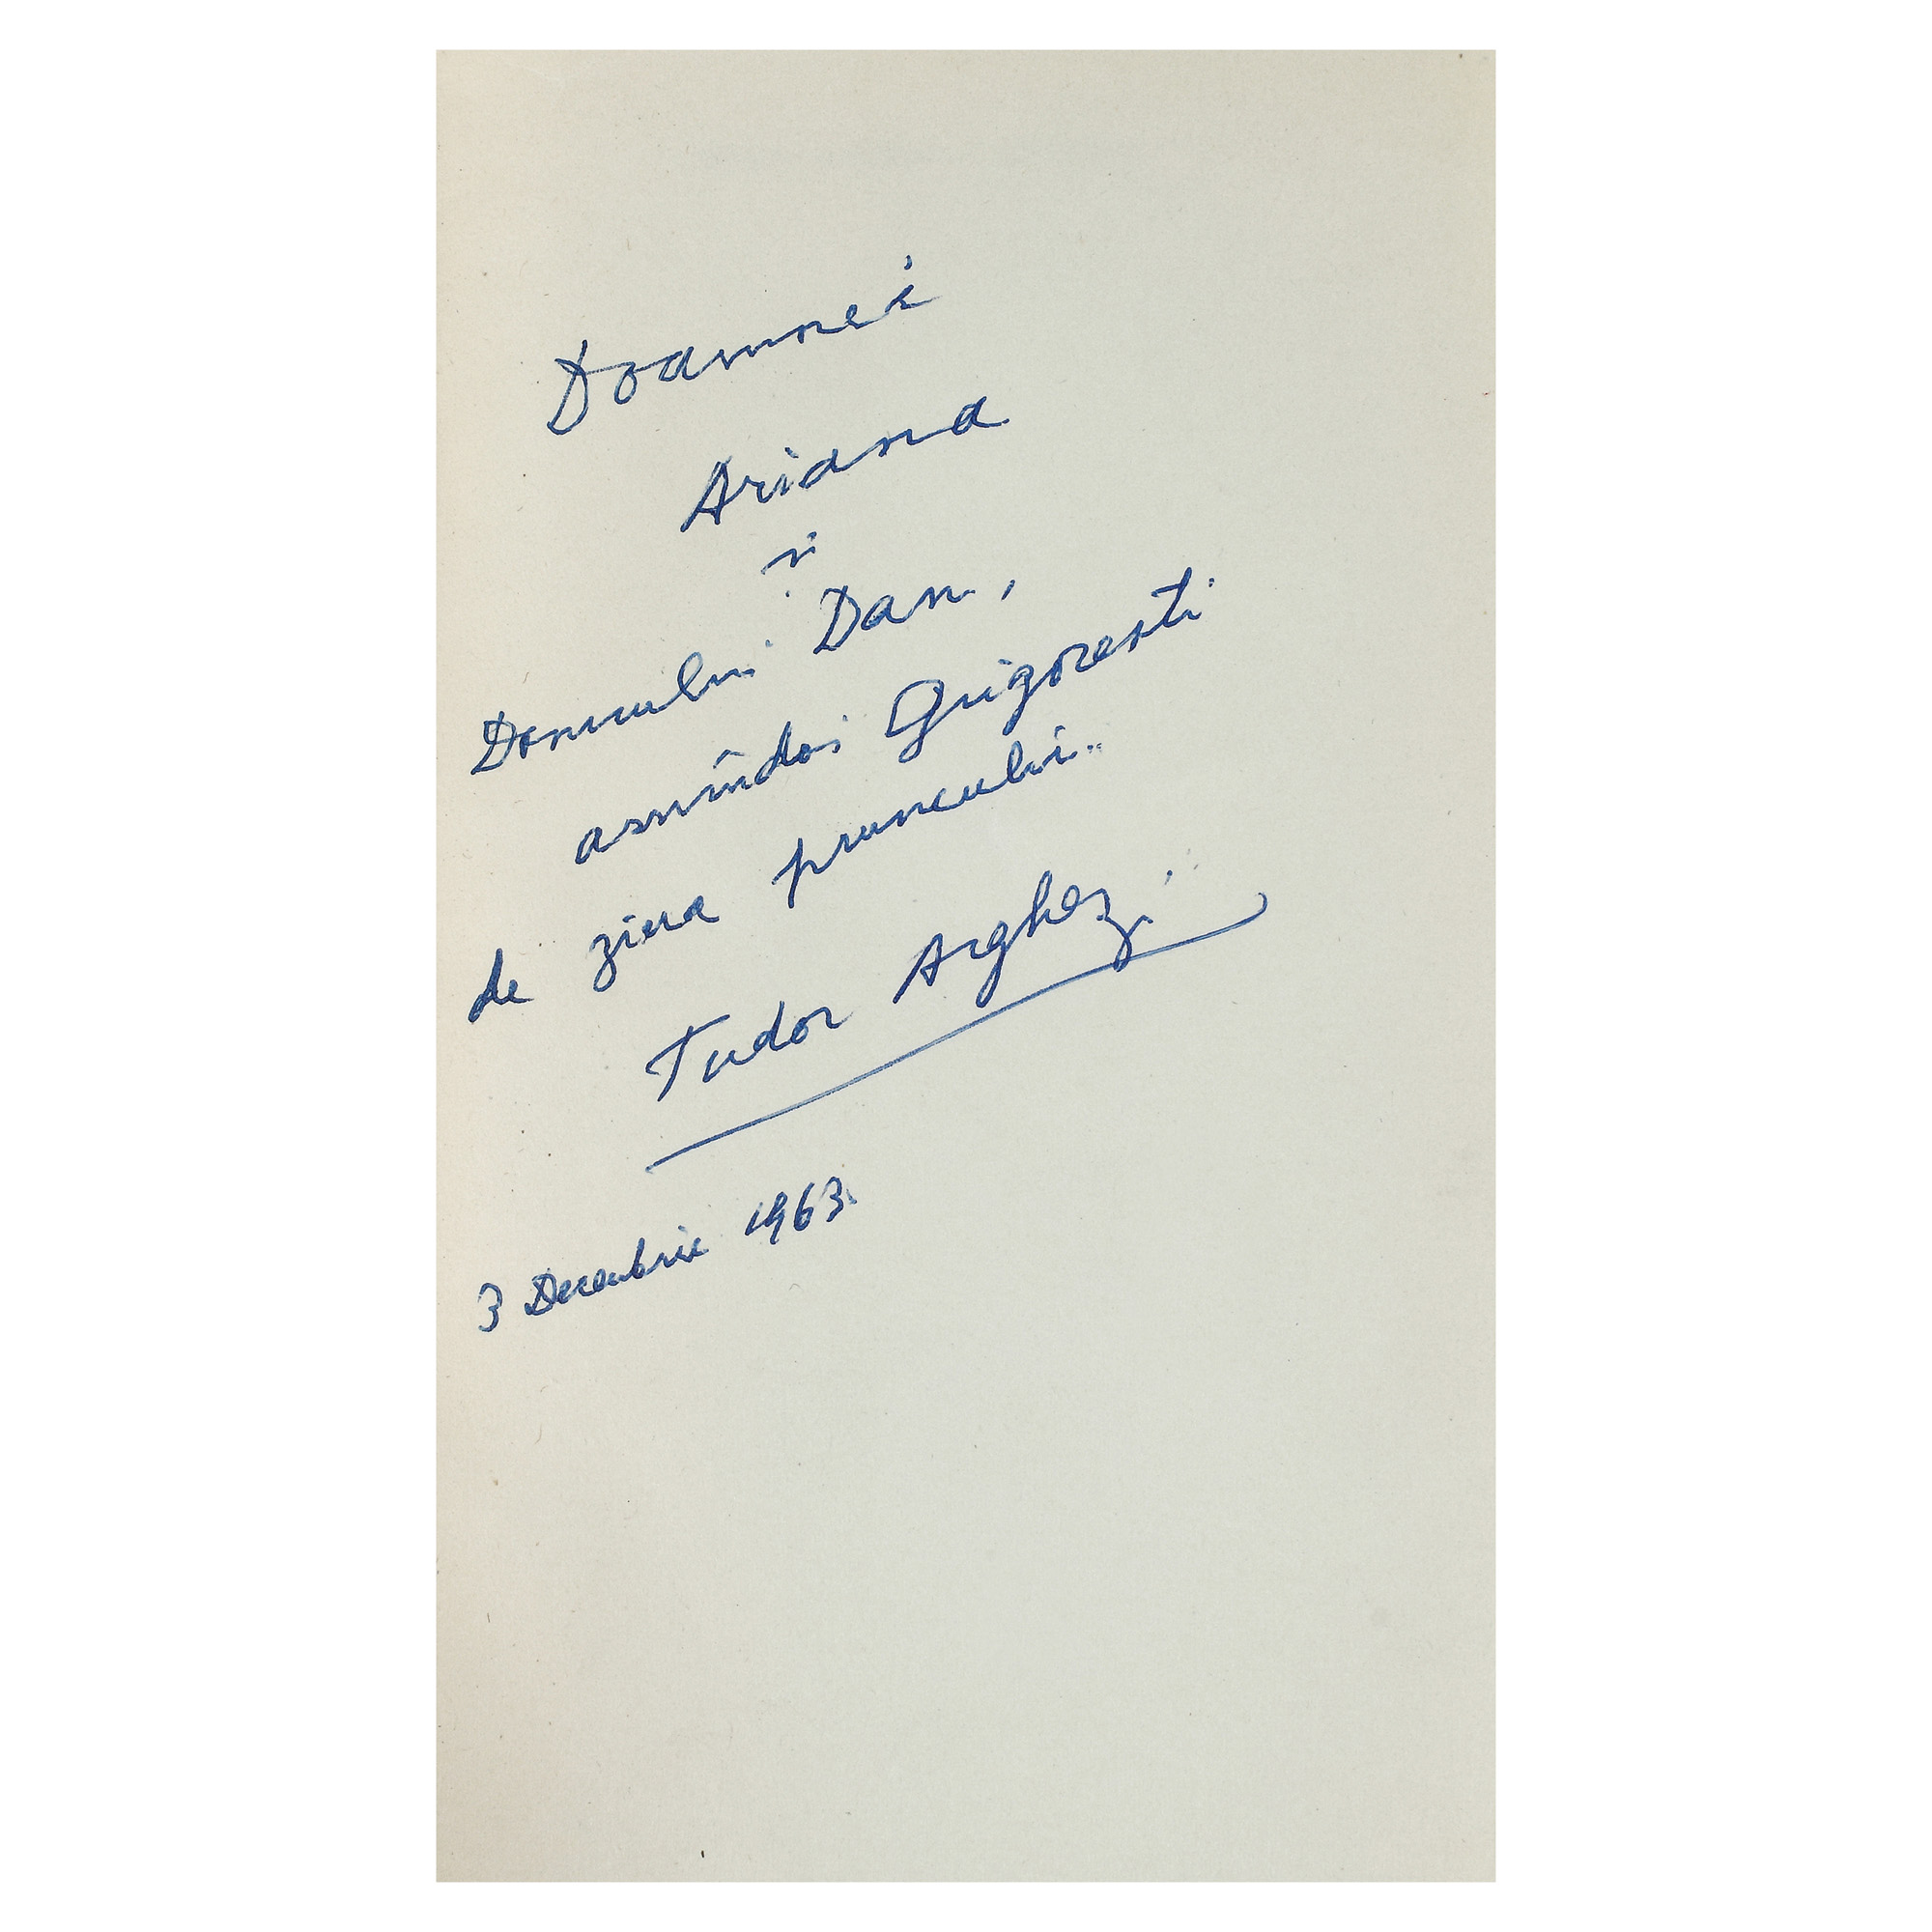 Doamnei
Ariana
și
Domnului Dan,
amîndoi Grigorești
de ziua pruncului..
Tudor Arghezi
3 Decembrie 1963.